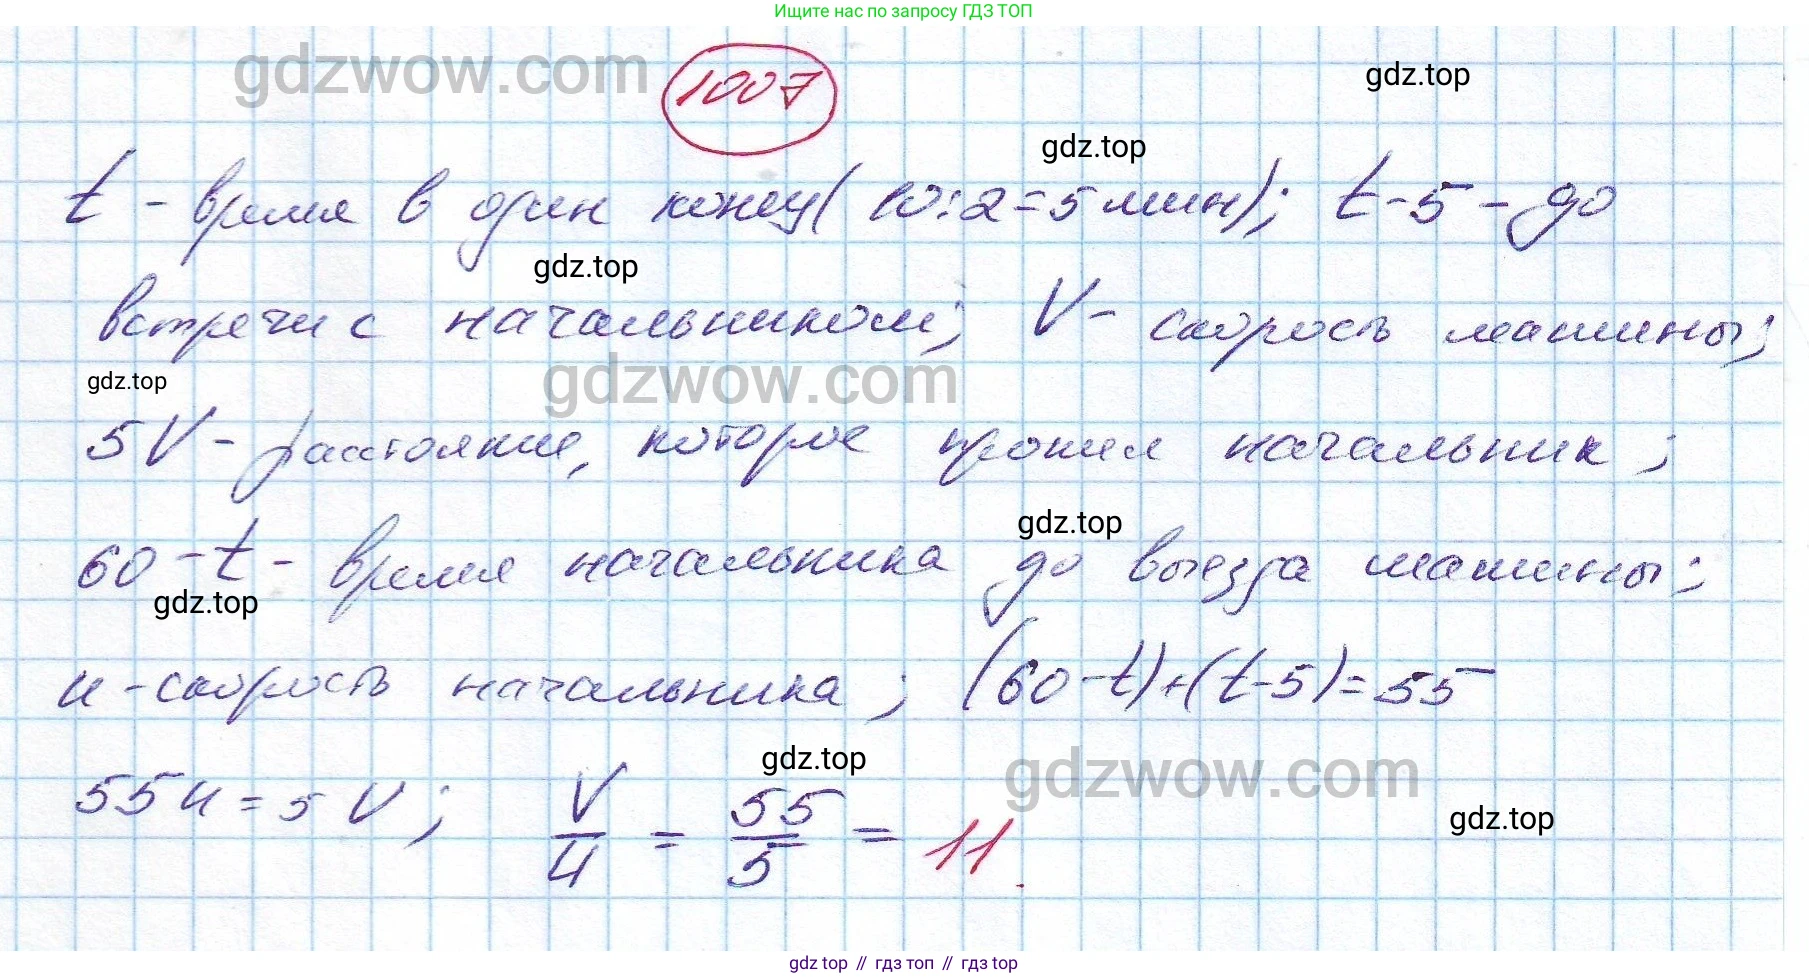 Ищите нас по запросу ГДЗ ТОП
gdzwow.com
1007
gdz.top
gdz.top
t - время в один конец (10:2=5 мин); t-5 - до
gdz.top
встречи с начальником; V - скорость машины;
gdz.top
gdzwow.com
5V - расстояние, которое прошел начальник;
gdz.top
60-t - время начальника до выезда машины;
gdz.top
u - скорость начальника; (60-t)+(t-5)=55
gdz.top
gdzwow.com
55u = 5V; V/u = 55/5 = 11.
gdz.top
gdz top // гдз топ // gdz top